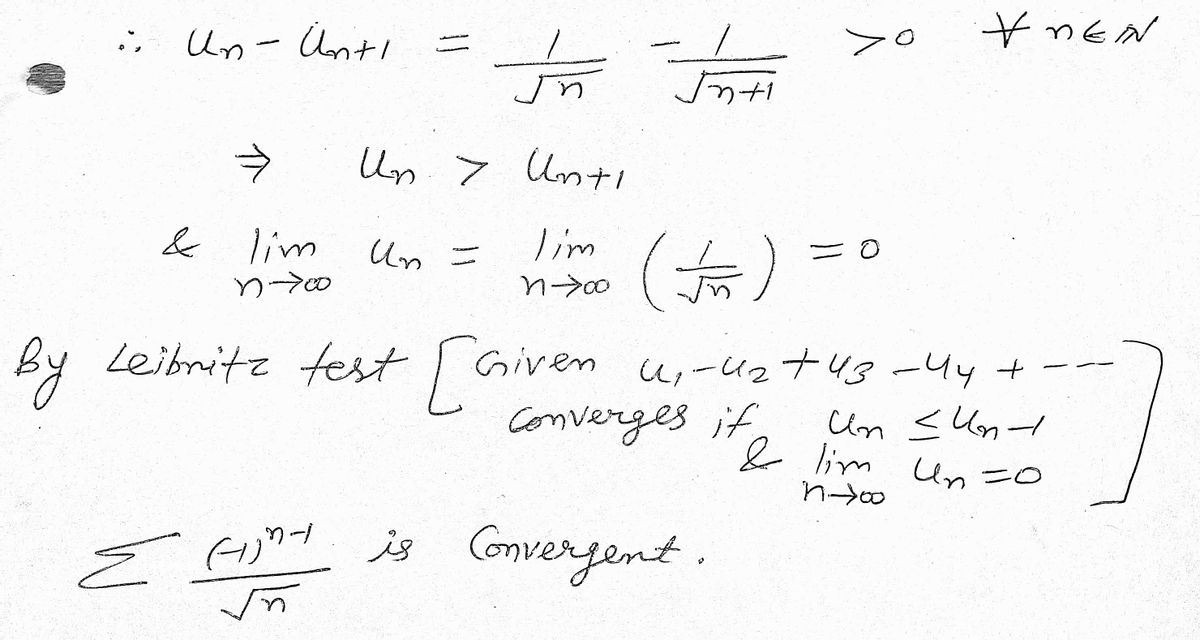 ∴ Un - Un+1 = 1/√n - 1/√n+1 > 0 ∀ n ∈ N
⇒ Un > Un+1
& lim n→∞ Un = lim n→∞ (1/√n) = 0
By Leibnitz test [Given u1 - u2 + u3 - u4 + ----
converges if Un ≤ Un-1
& lim n→∞ Un = 0]
Σ (-1)^n-1/√n is Convergent.